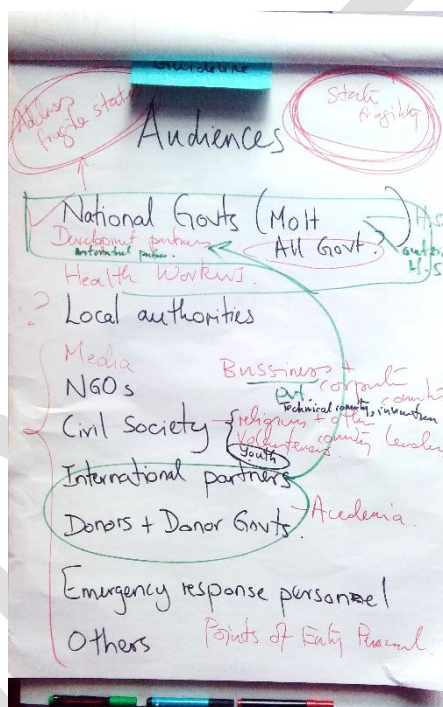 Guideline
Address
fragile state
State
fragility
Audiences
National Govts (MoH
H.S
All Govt.?
Development partners
Health Workers.
? Local authorities
Media
NGOs
Bussiness +
pvt
Technical
Civil Society { religious + other
Volunteers
Youth
International partners
Donors + Donor Govts.
Acedemia.
Emergency response personnel
Others
Points of Enty Personel